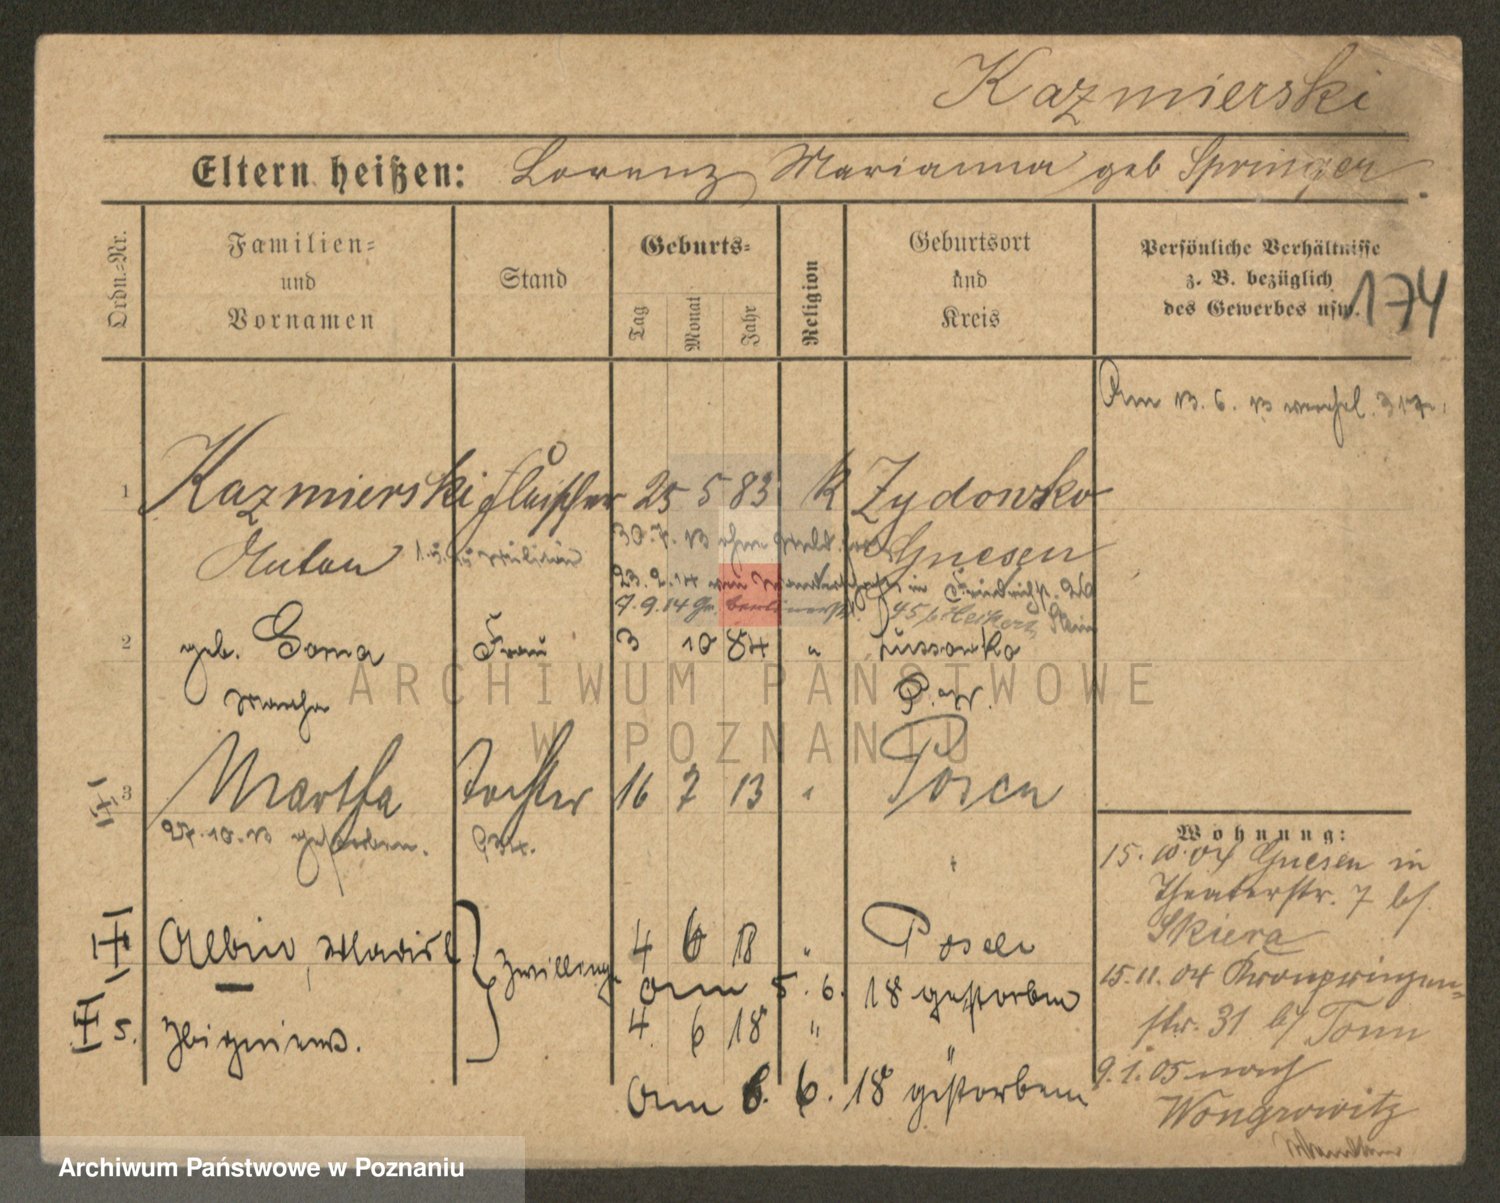 Kazmierski
Eltern heißen: Lorenz Marianna geb Springer
Ordn.=Nr.
Familien=
und
Vornamen
Stand
Geburts=
Tag
Monat
Jahr
Religion
Geburtsort
und
Kreis
Persönliche Verhältnisse
z. B. bezüglich
des Gewerbes usw.
174
Am 13. 6. 13
1 Kazmierski Fleischer 25 5 83 k Zydowko
Anton Gnesen
30. 7. 13 ohne
23. 2. 14 in
7. 9. 14
2 geb. Frau 3 10 84 "
Martha
ARCHIWUM PAŃSTWOWE
W POZNANIU
3 Martha Tochter 16 7 13 " Posen
27. 10. 13 gestorben.
Wohnung:
15. 10. 04 Gnesen in
Theaterstr. 7 bs.
Skiera
15. 11. 04 Kronprinzen-
str. 31 bs Tonn
9. 1. 05 nach
Wongrowitz
Albin, Wladisl. Zwillinge 4 6 18 " Posen
am 5. 6. 18 gestorben
5. Zbigniew. 4 6 18 " "
am 6. 6. 18 gestorben
Archiwum Państwowe w Poznaniu